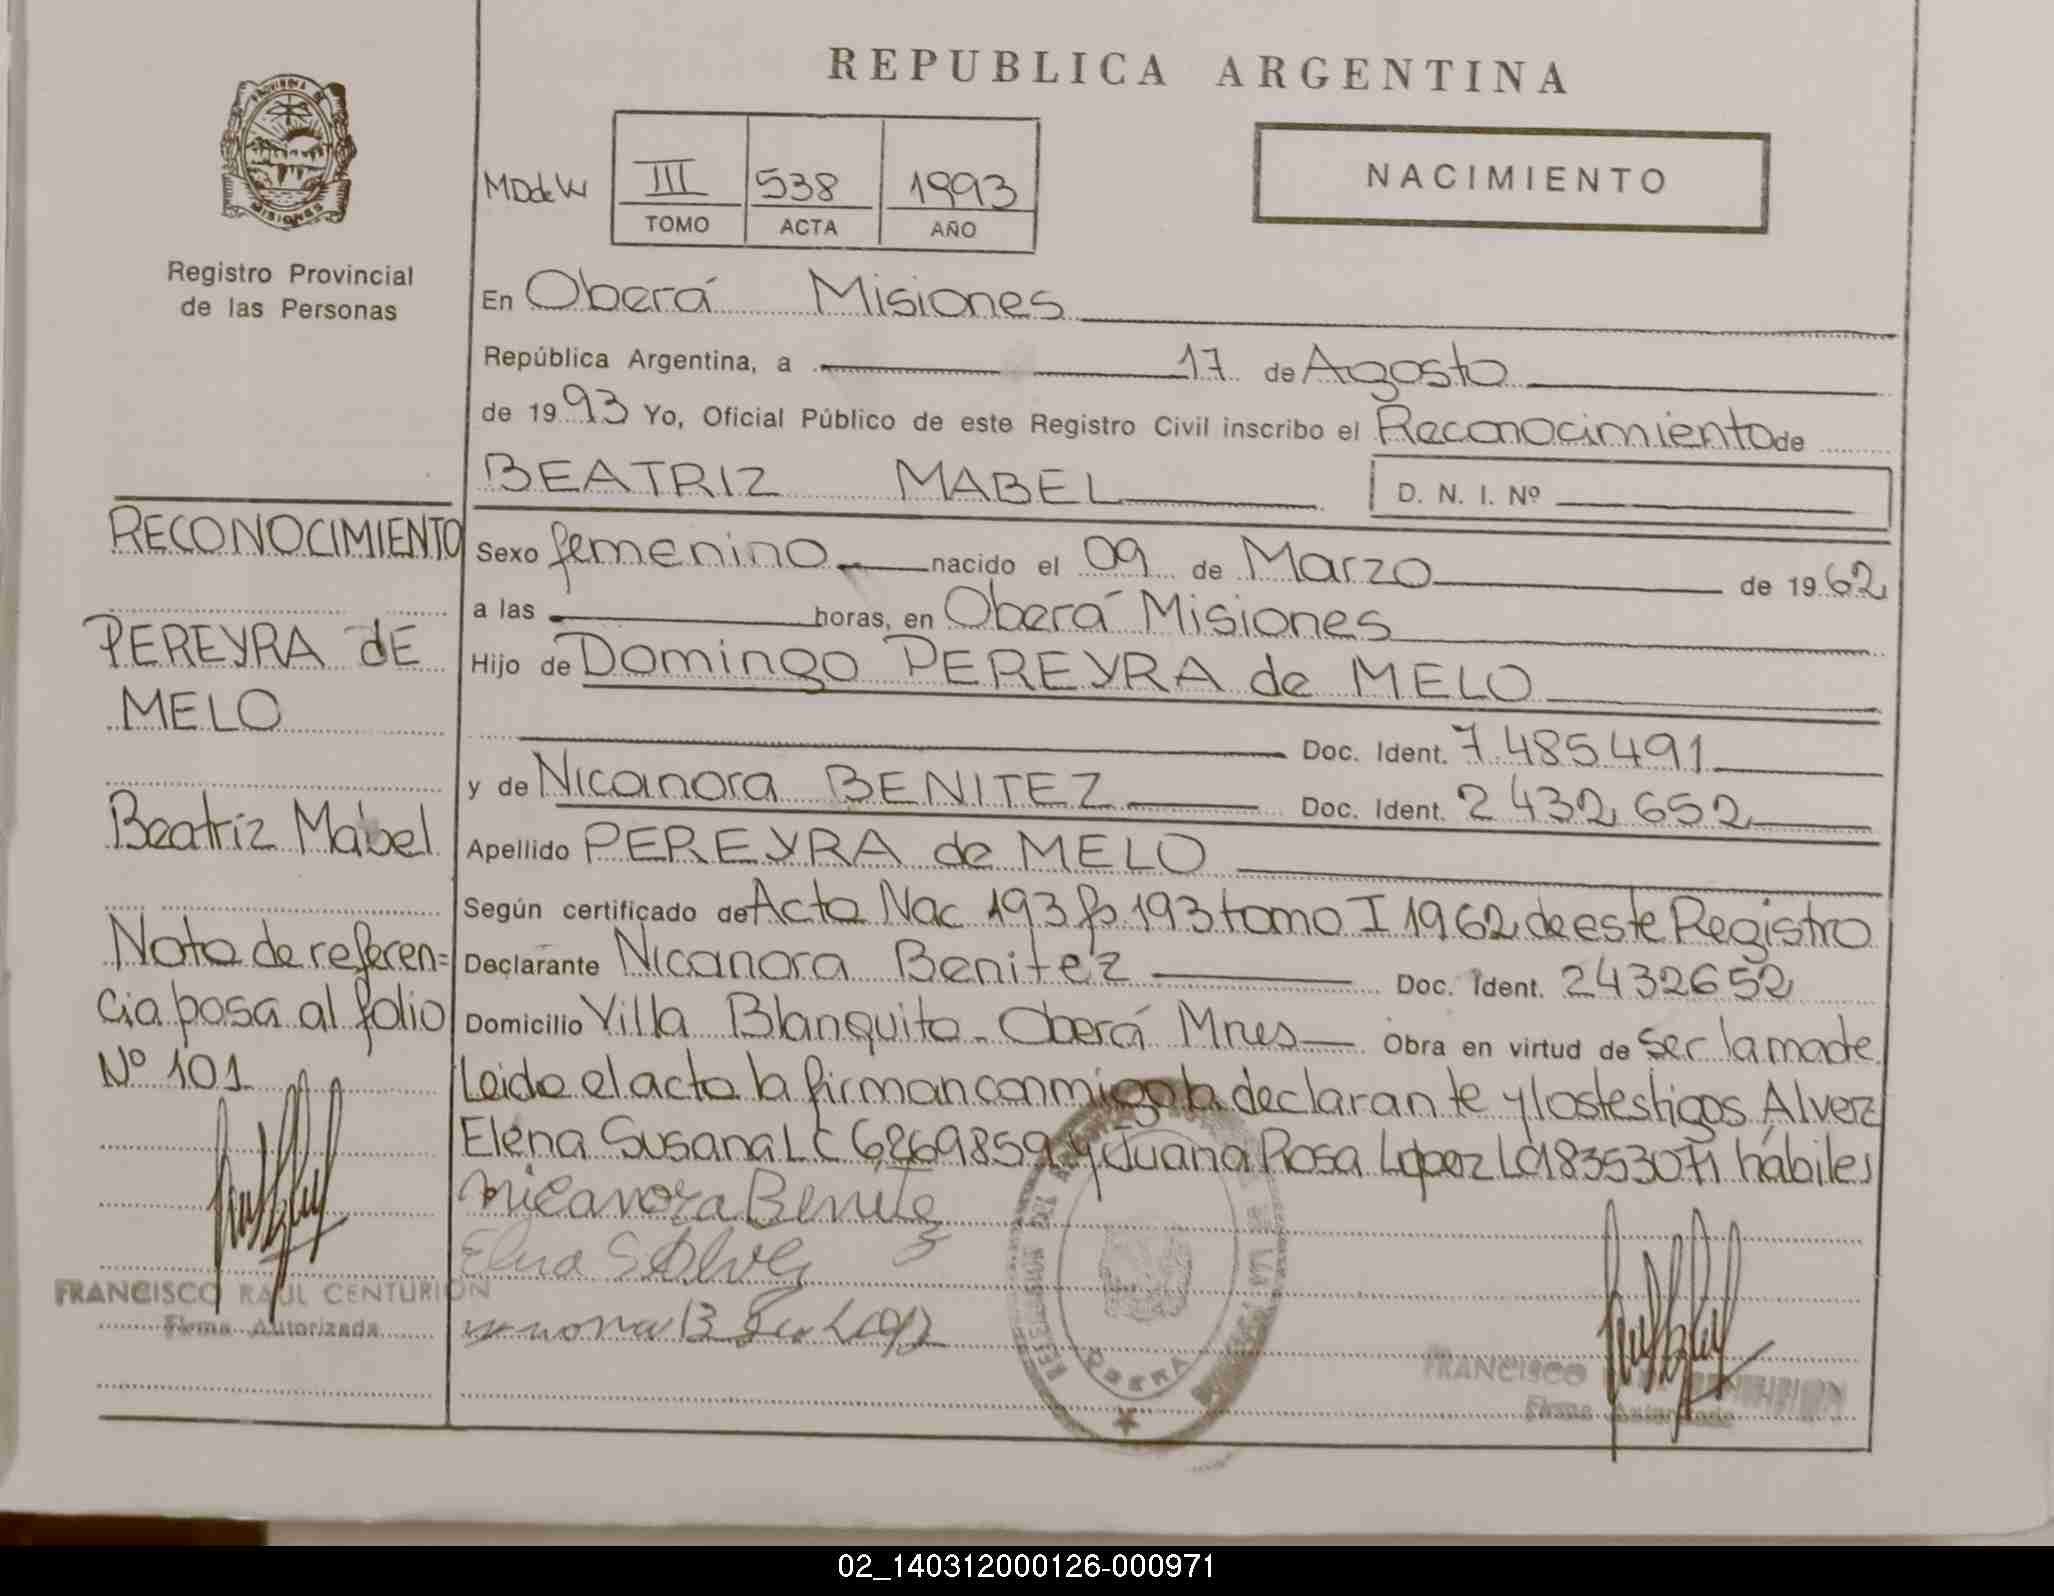 REPUBLICA ARGENTINA
PROVINCIA DE
MISIONES
Registro Provincial
de las Personas
MDdeW
III 538 1993
TOMO ACTA AÑO
NACIMIENTO
En Oberá Misiones
República Argentina, a 17 de Agosto
de 1993 Yo, Oficial Público de este Registro Civil inscribo el Reconocimiento de
BEATRIZ MABEL D. N. I. Nº
Sexo femenino nacido el 09 de Marzo de 1962
a las horas, en Oberá Misiones
Hijo de Domingo PEREYRA de MELO
Doc. Ident. 7.485.491
y de Nicanora BENITEZ Doc. Ident. 2 432 652
Apellido PEREYRA de MELO
Según certificado de Acta Nac 193 fo 193 tomo I 1962 de este Registro
Declarante Nicanora Benitez Doc. Ident. 2432652
Domicilio Villa Blanquita - Oberá Mnes Obra en virtud de ser la madre
Leido el acta la firman conmigo la declarante y los testigos Alvez
Elena Susana LC 6269859 y Juana Rosa Lopez LC 18353071 hábiles
Nicanora Benitez
Elena S Alvez
OBERA
FRANCISCO
Firma Autorizada
RECONOCIMIENTO
PEREYRA dE
MELO
Beatriz Mabel
Nota de referen=
cia pasa al folio
Nº 101
FRANCISCO RAUL CENTURION
Firma Autorizada
02_140312000126-000971